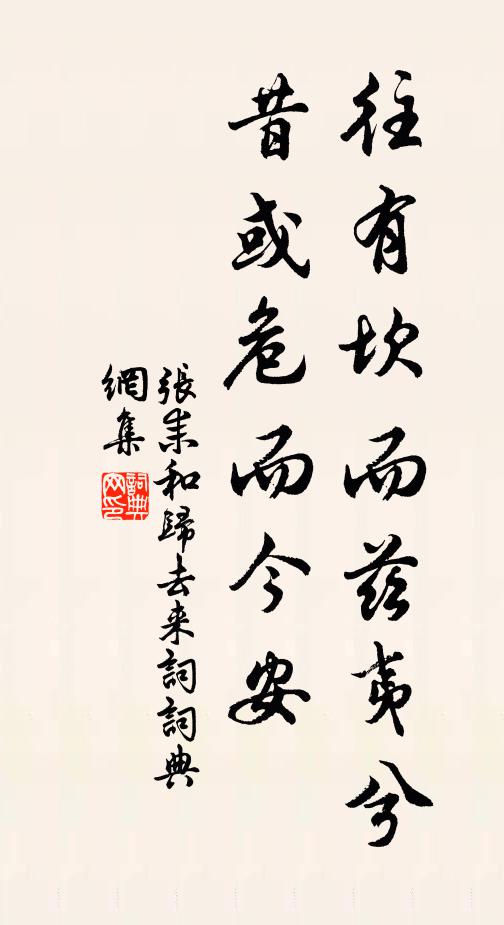 往有坎而茲夷兮
昔或危而今安
張耒和歸去来詞詞典
網集
詞典
网印